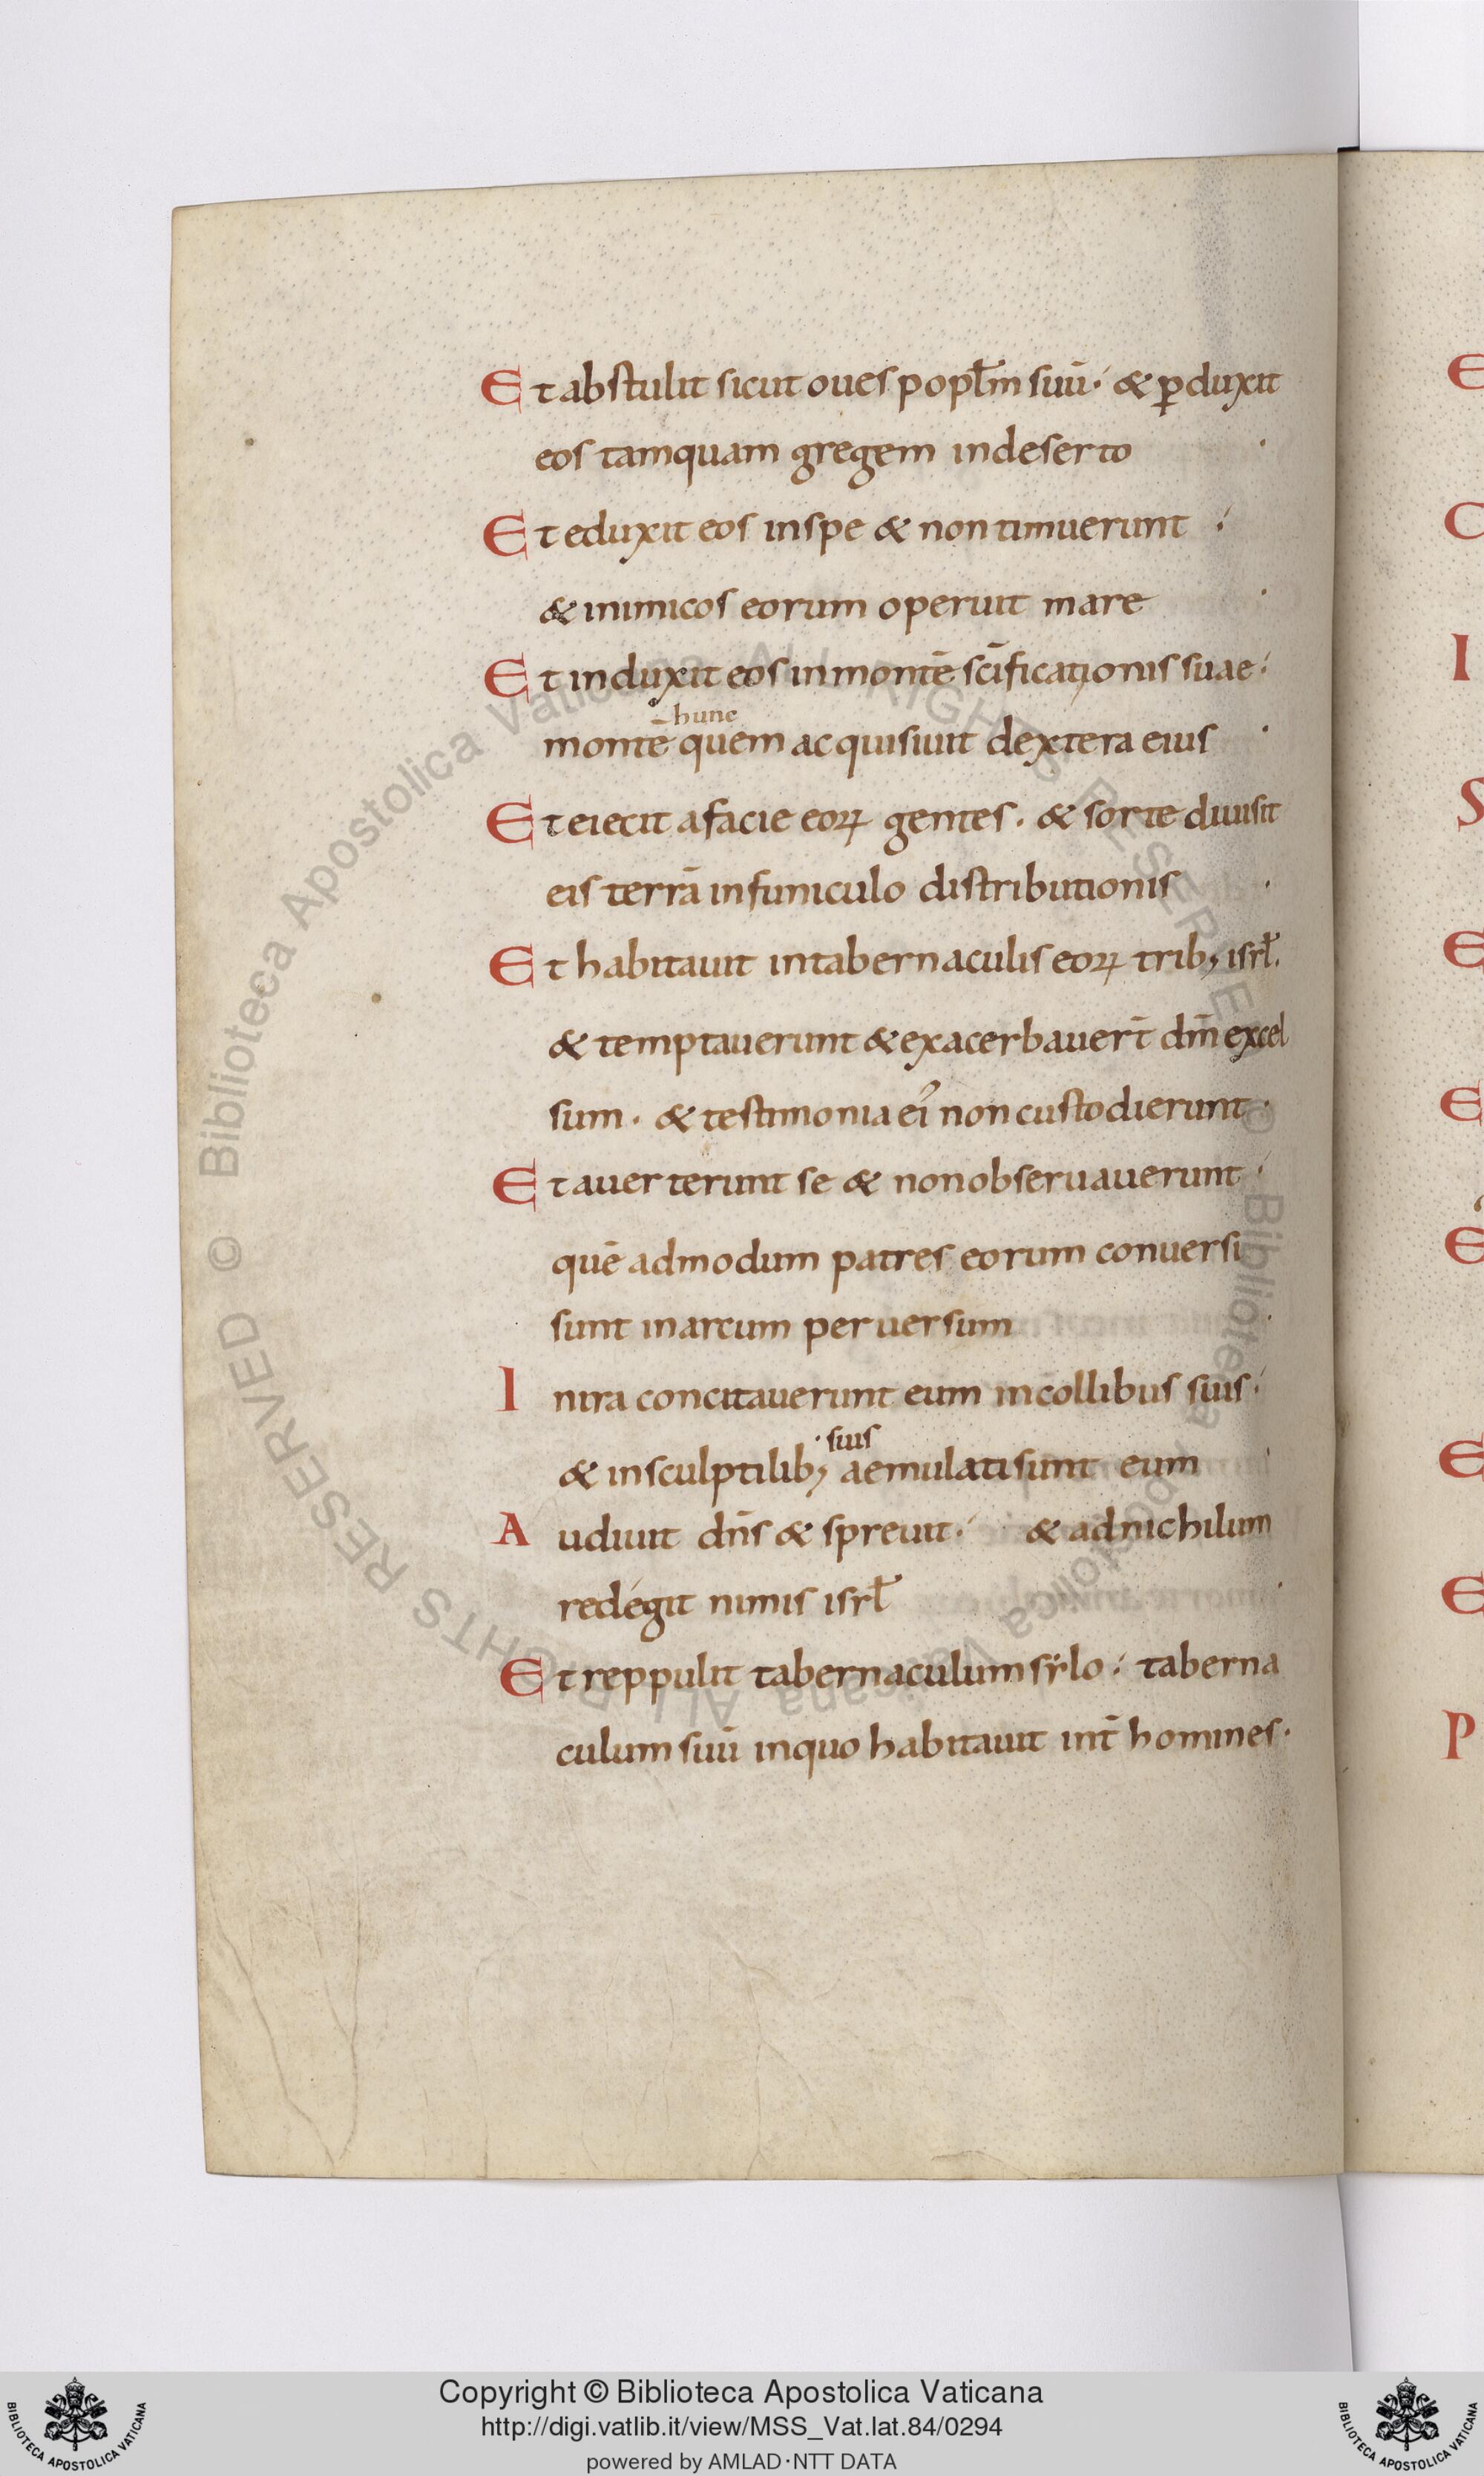 Et abstulit sicut oues popłm suū· & ꝑduxit
eos tamquam gregem indeserto ·
Et eduxit eos inspe & non timuerunt ·
& inimicos eorum operuit mare ·
Et induxit eos inmontē scīficationis suae·
hunc
montē quem acquisiuit dextera eius ·
Et eiecit afacie eoꝝ gentes· & sorte diuisit
eis terrā infuniculo distributionis ·
Et habitauit intabernaculis eoꝝ trib; isrł·
& temptauerunt & exacerbauer̄t dm̄ excel
sum· & testimonia ei᾿ non custodierunt·
Et auerterunt se & nonobseruauerunt ·
quē admodum patres eorum conuersi
sunt inarcum peruersum ·
Inira concitauerunt eum incollibus suis·
· suis
& insculptilib; aemulati sunt eum ·
Audiuit dn̄s & spreuit· & adnichilum
redégit nimis isrł ·
Et reppulit tabernaculum sẏlo· taberna
culum suū inquo habitauit int̄ homines·
E
C
I
S
E
E
E
E
E
P
© Biblioteca Apostolica Vaticana ALL RIGHTS RESERVED
© Biblioteca Apostolica Vaticana ALL RIGHTS RESERVED
Copyright © Biblioteca Apostolica Vaticana
http://digi.vatlib.it/view/MSS_Vat.lat.84/0294
powered by AMLAD·NTT DATA
BIBLIOTECA APOSTOLICA VATICANA
BIBLIOTECA APOSTOLICA VATICANA